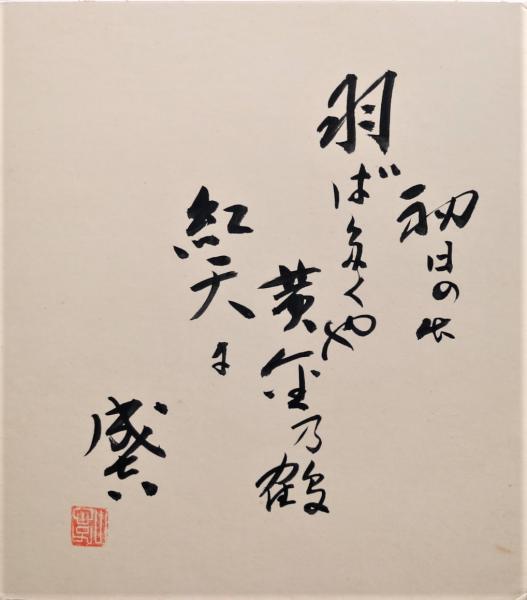 初日の出
羽ばたくや
黄金乃鶴
紅天に